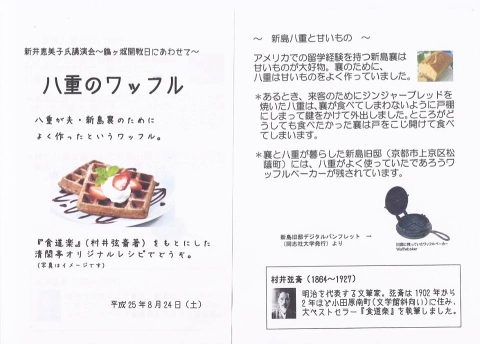 新井恵美子氏講演会～鶴ヶ城開戦日にあわせて～
八重のワッフル
八重が夫・新島襄のために
よく作ったというワッフル。
『食道楽』（村井弦斎著）をもとにした
清閑亭オリジナルレシピでどうぞ。
（写真はイメージです）
平成25年8月24日（土）
～ 新島八重と甘いもの ～
アメリカでの留学経験を持つ新島襄は
甘いものが大好物。襄のために、
八重は甘いものをよく作っていました。
＊あるとき、来客のためにジンジャーブレッドを
焼いた八重は、襄が食べてしまわないように戸棚
にしまって鍵をかけて外出しました。ところがど
うしても食べたかった襄は戸をこじ開けて食べ
てしまいます。
＊襄と八重が暮らした新島旧邸（京都市上京区松
蔭町）には、八重がよく使っていたであろうワ
ッフルベーカーが残されています。
新島旧邸デジタルパンフレット →
（同志社大学発行）より
旧邸に残っていたワッフルベーカー
Waffle baker
村井弦斎（1864～1927）
明治を代表する文筆家。弦斎は1902年から
2年ほど小田原南町（文学館斜向い）に住み、
大ベストセラー『食道楽』を執筆しました。